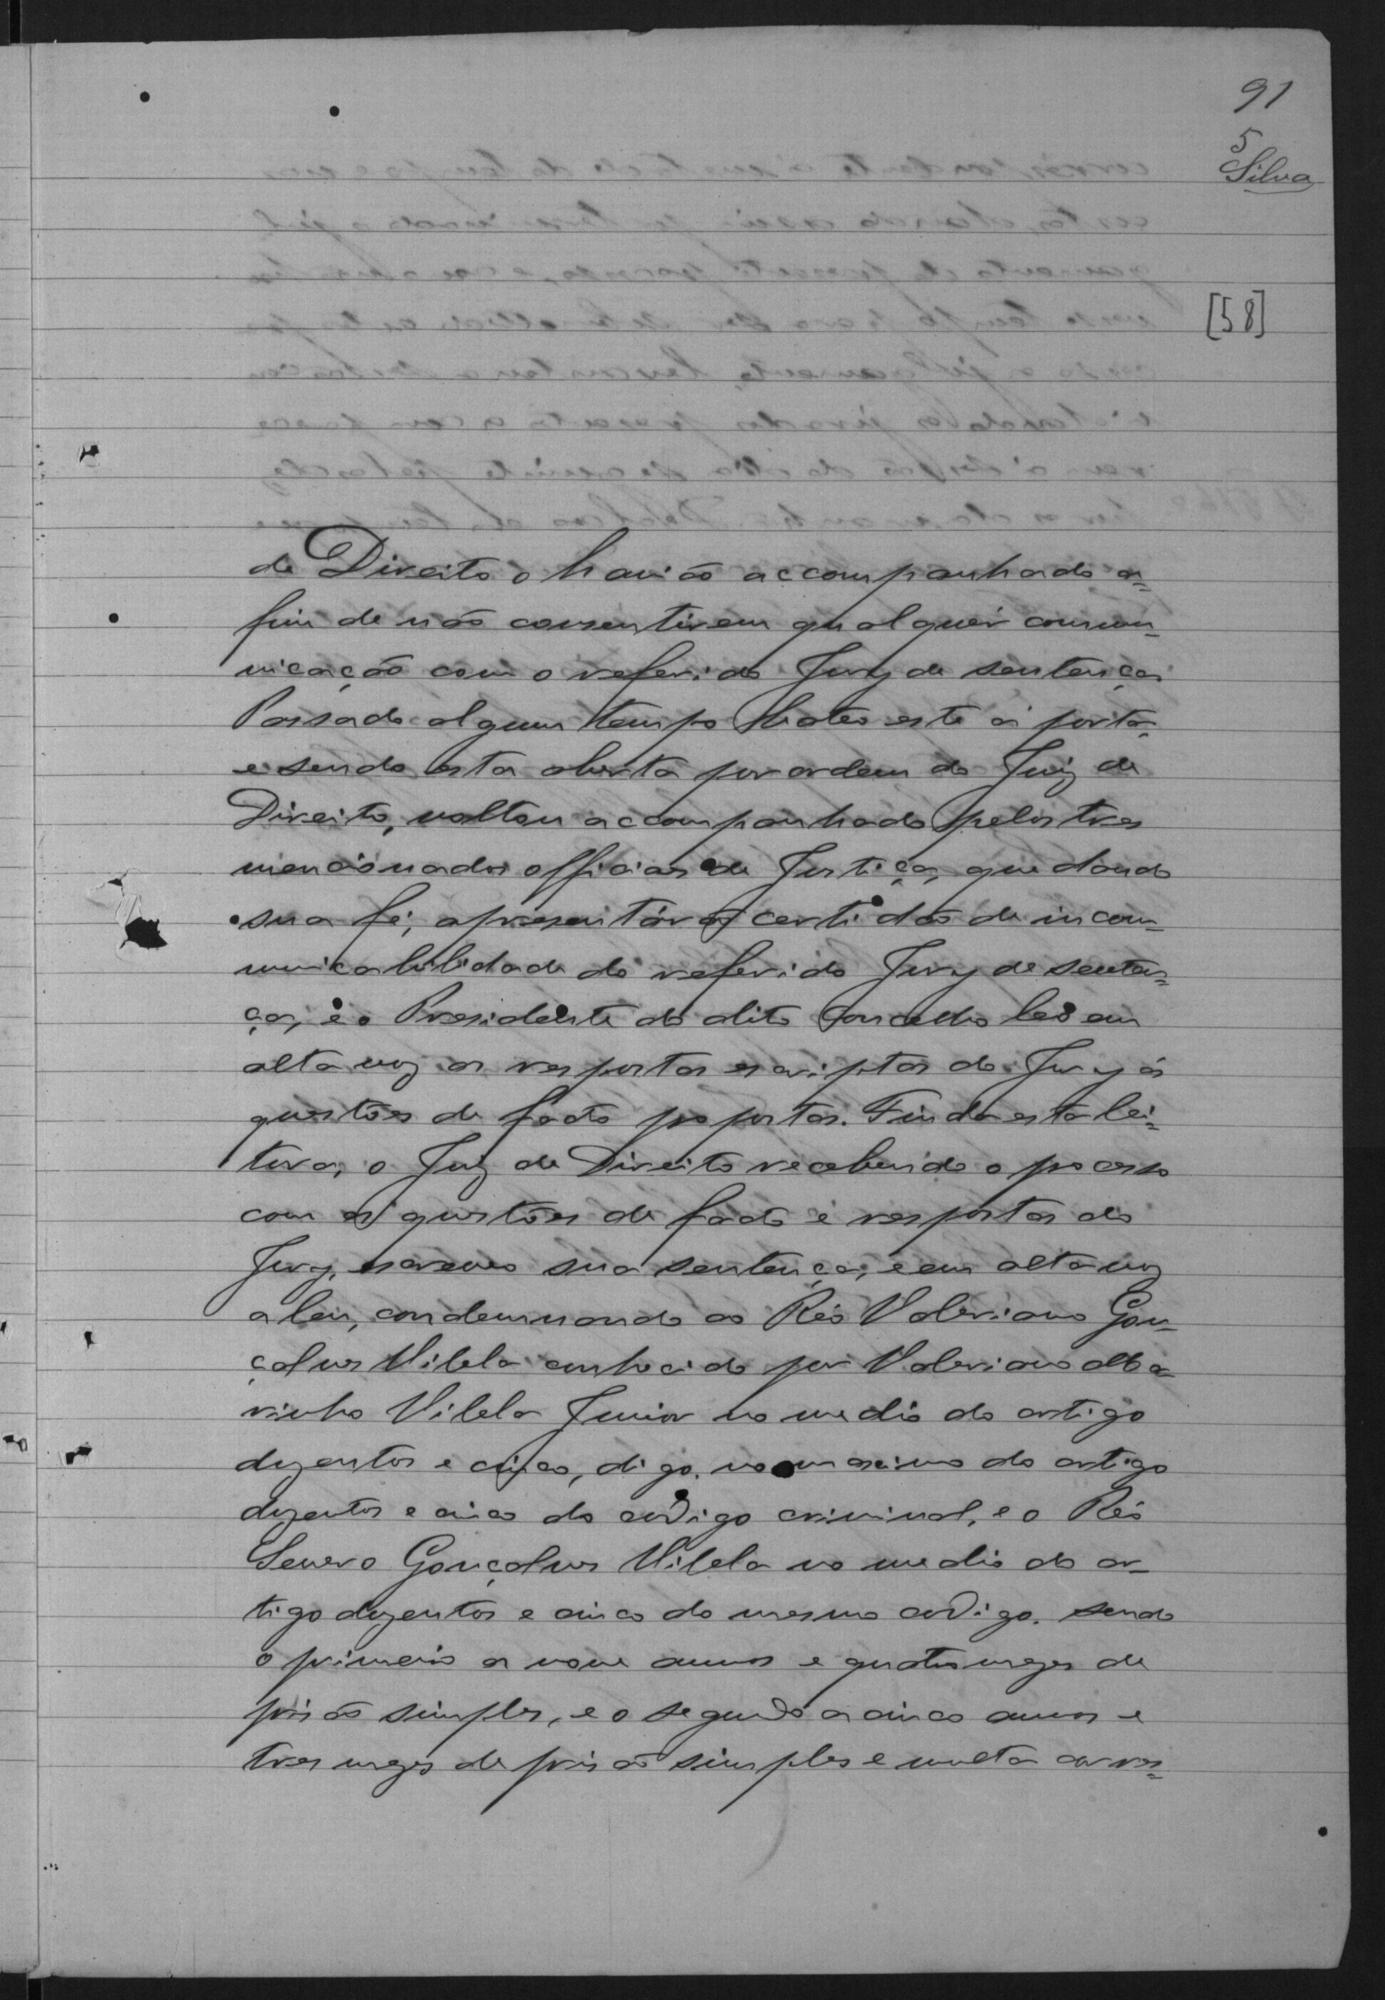 91
5
Silva
[58]
de Direito o havião accompanhado a-
fim de não consentirem qualquér commu-
nicação com o referido Jury de sentença.
Passado algum tempo bateo este á porta,
e sendo esta aberta por ordem do Juiz de
Direito, voltou accompanhado pelos tres
mencionados officiaes de Justiça, que dando
sua fé, apresentárão certidão de incom-
municabilidade do referido Jury de senten-
ça, e o Presidente do dito Concelho leo em
alta voz as respostas escriptas do Jury ás
questões de facto propostas. Finda esta lei-
tura, o Juiz de Direito recebendo o processo
com as questões de facto e respostas do
Jury, escreveo sua sentença, e em alta voz
a leu, condemnando ao Réo Valeriano Gon-
çalves Vilela conhecido por Valeriano
Vilela Junior no medio do artigo
duzentos e cinco, digo, no maximo do artigo
duzentos e cinco do codigo criminal, e o Réo
Severo Gonçalves Vilela no medio do ar-
tigo duzentos e cinco do mesmo codigo. sendo
o primeiro a nove annos e quatro mezes de
prisão simples, e o segundo a cinco annos e
tres mezes de prisão simples e multa corres-